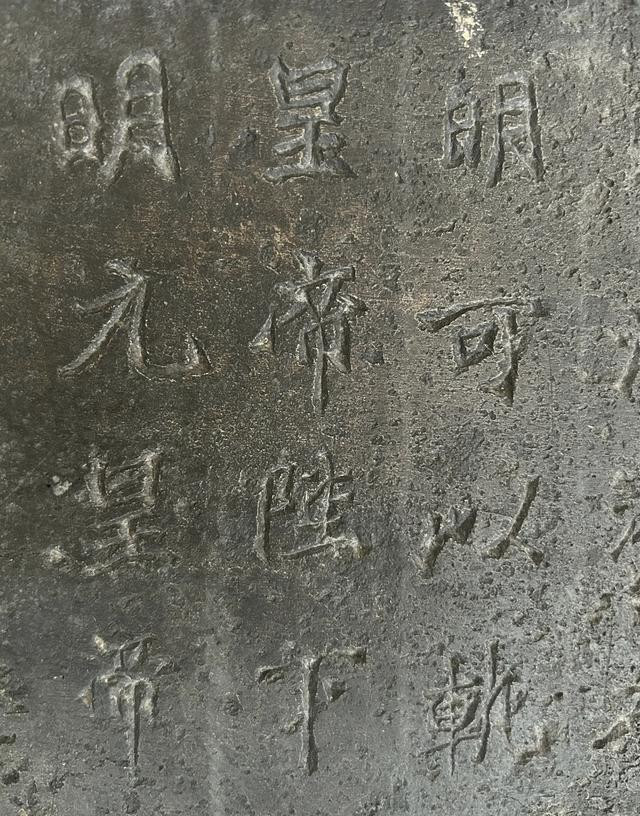 明可以軌
皇帝陛下
明元皇帝